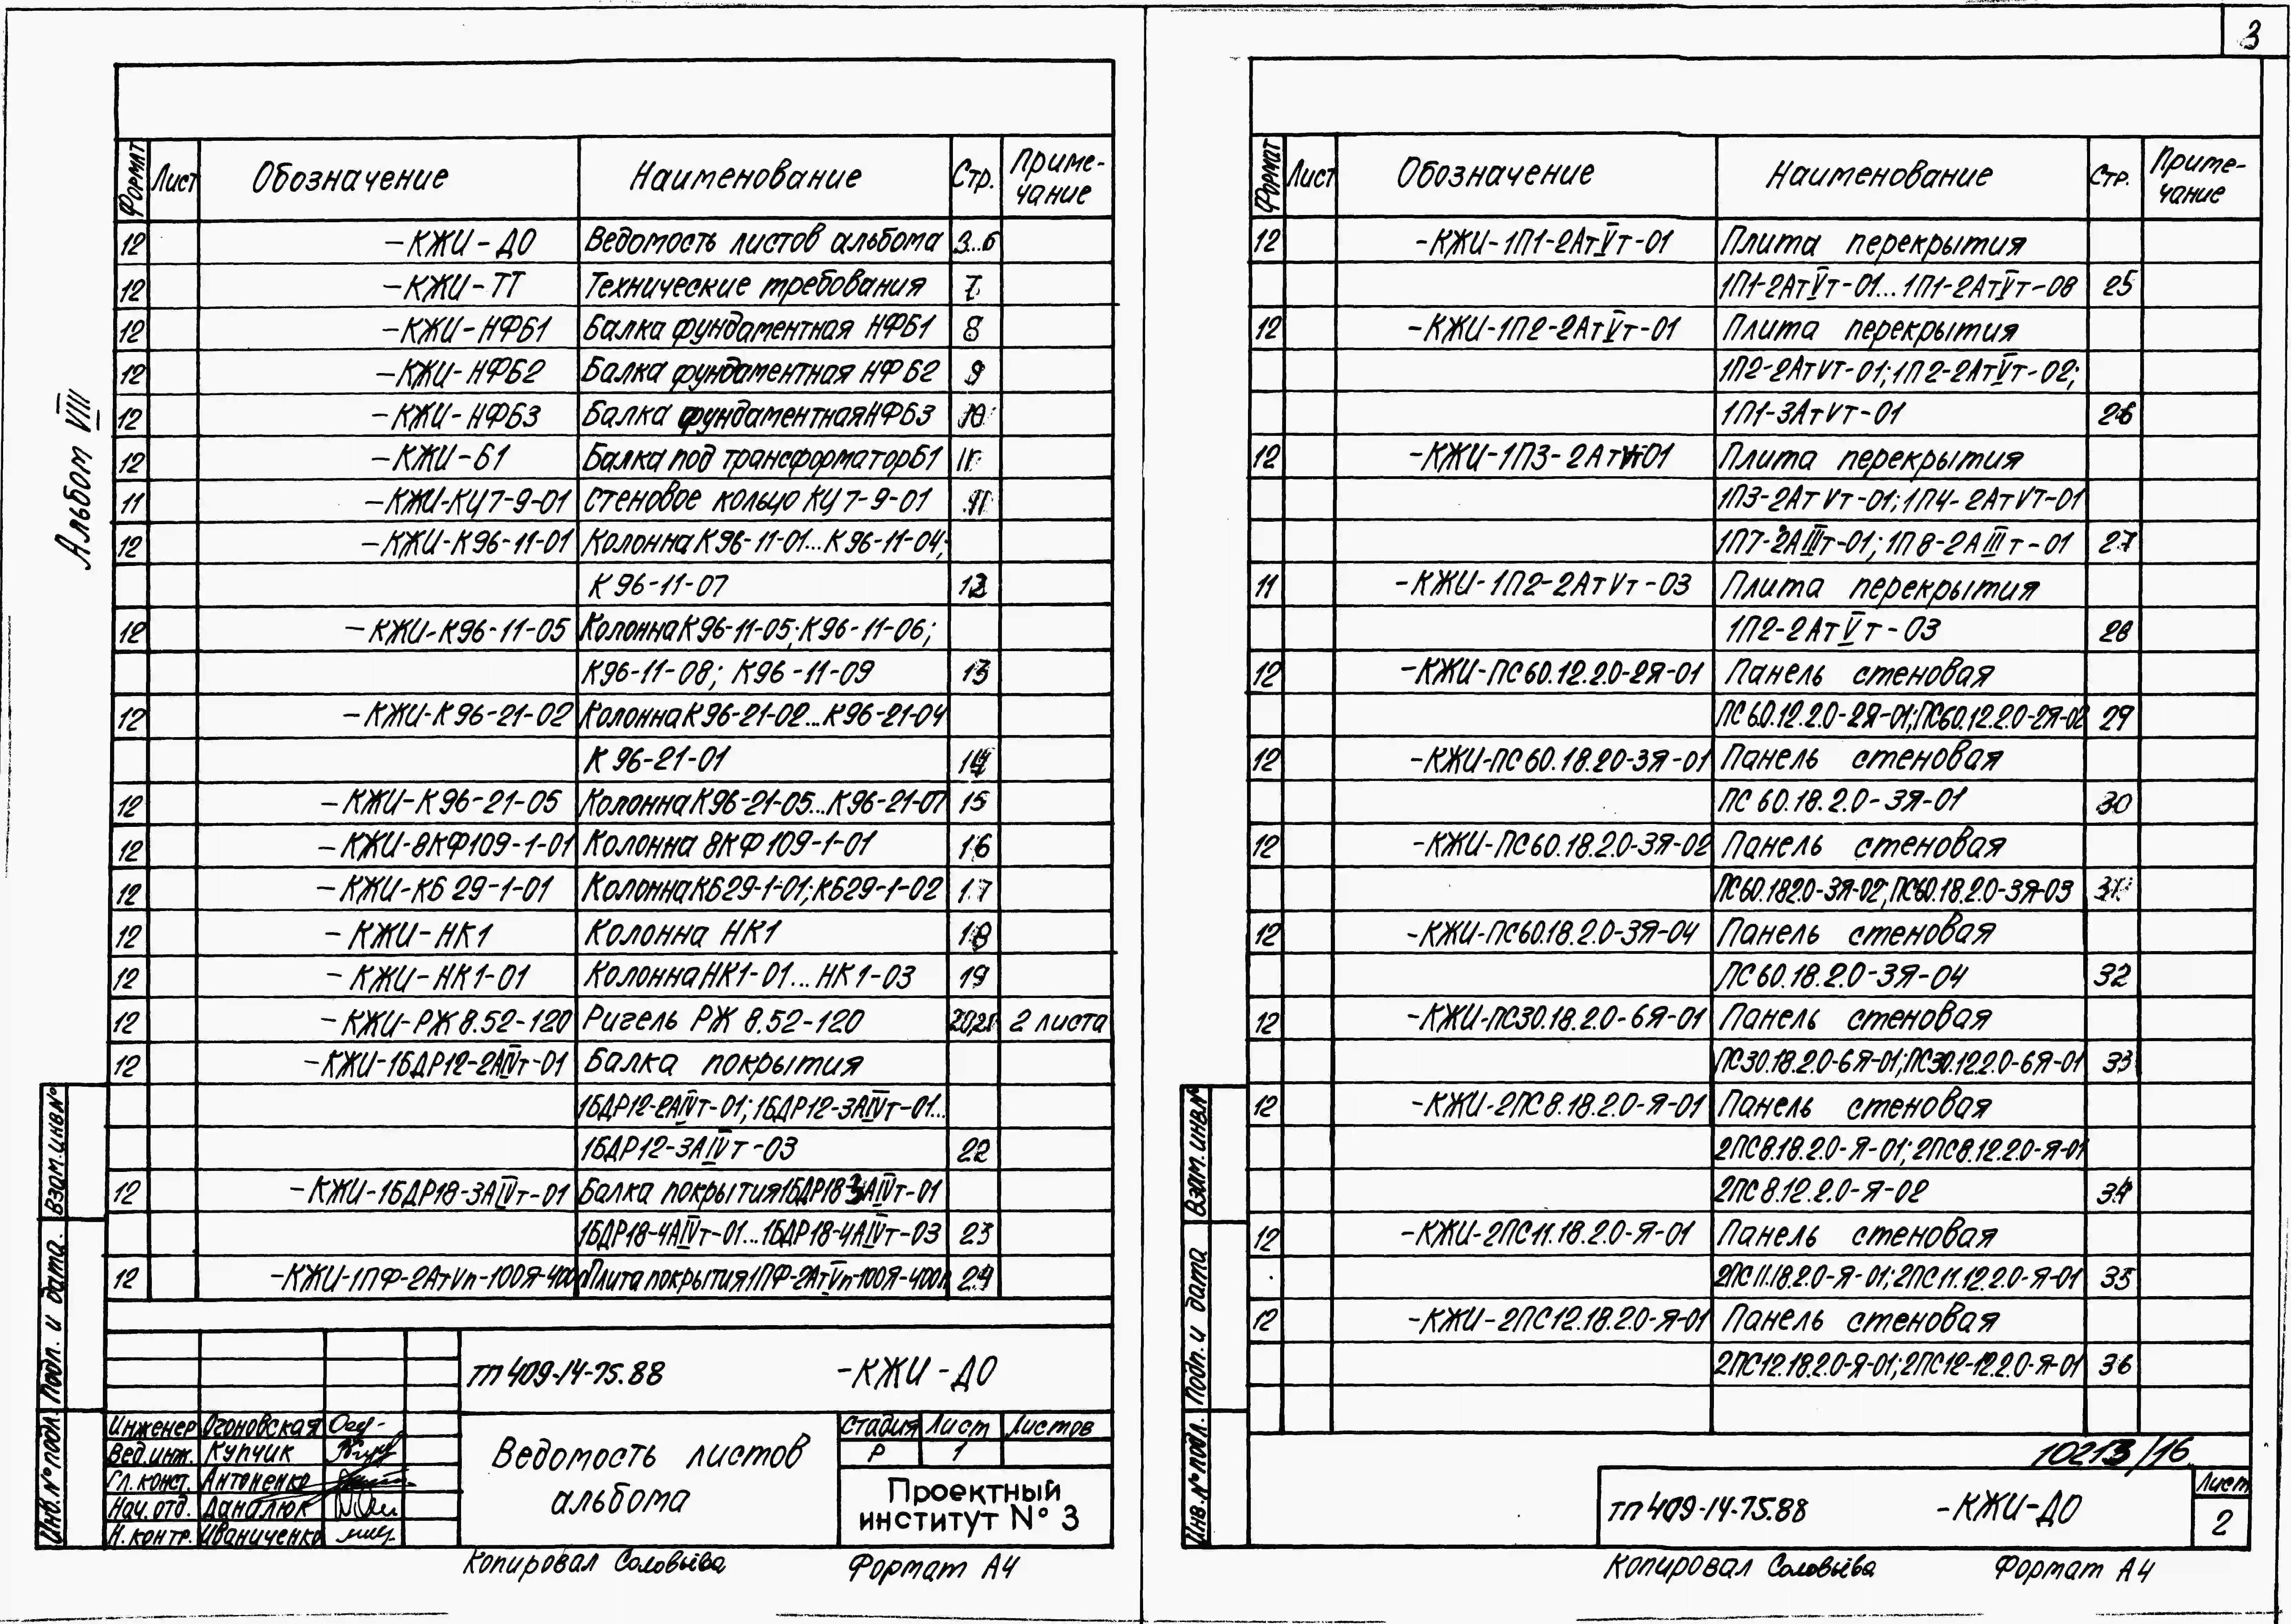 3
Альбом VIII
Формат Лист Обозначение Наименование Стр. Приме-чание
12 -КЖИ-ДО Ведомость листов альбома 3..6
12 -КЖИ-ТТ Технические требования 7
12 -КЖИ-НФБ1 Балка фундаментная НФБ1 8
12 -КЖИ-НФБ2 Балка фундаментная НФБ2 9
12 -КЖИ-НФБ3 Балка фундаментная НФБ3 10
12 -КЖИ-Б1 Балка под трансформатор Б1 11
11 -КЖИ-КЦ7-9-01 Стеновое кольцо КЦ7-9-01 11
12 -КЖИ-К96-11-01 Колонна К96-11-01...К96-11-04;
К96-11-07 12
12 -КЖИ-К96-11-05 Колонна К96-11-05; К96-11-06;
К96-11-08; К96-11-09 13
12 -КЖИ-К96-21-02 Колонна К96-21-02...К96-21-04
К96-21-01 14
12 -КЖИ-К96-21-05 Колонна К96-21-05...К96-21-07 15
12 -КЖИ-8КФ109-1-01 Колонна 8КФ109-1-01 16
12 -КЖИ-КБ29-1-01 Колонна КБ29-1-01; КБ29-1-02 17
12 -КЖИ-НК1 Колонна НК1 18
12 -КЖИ-НК1-01 Колонна НК1-01...НК1-03 19
12 -КЖИ-РЖ8.52-120 Ригель РЖ 8.52-120 20,21 2 листа
12 -КЖИ-1БДР12-2АIVт-01 Балка покрытия
1БДР12-2АIVт-01; 1БДР12-3АIVт-01...
1БДР12-3АIVт-03 22
12 -КЖИ-1БДР18-3АIVт-01 Балка покрытия 1БДР18-3АIVт-01
1БДР18-4АIVт-01...1БДР18-4АIVт-03 23
12 -КЖИ-1ПФ-2АтVп-100Я-400п Плита покрытия 1ПФ-2АтVп-100Я-400п 24
тп 409-14-75.88 -КЖИ-ДО
Инженер Огоновская
Вед.инж. Купчик
Гл. конст. Антоненко
Нач. отд. Даналюк
Н. контр. Иваниченко
Ведомость листов
альбома
Стадия Лист Листов
Р 1
Проектный
институт № 3
Взам. инв.№
Подп. и дата.
Инв.№ подл.
Копировал Соловьёва Формат А4
Формат Лист Обозначение Наименование Стр. Приме-чание
12 -КЖИ-1П1-2АтVт-01 Плита перекрытия
1П1-2АтVт-01...1П1-2АтVт-08 25
12 -КЖИ-1П2-2АтVт-01 Плита перекрытия
1П2-2АтVт-01; 1П2-2АтVт-02;
1П1-3АтVт-01 26
12 -КЖИ-1П3-2АтVт-01 Плита перекрытия
1П3-2АтVт-01; 1П4-2АтVт-01
1П7-2АIIIт-01; 1П8-2АIIIт-01 27
11 -КЖИ-1П2-2АтVт-03 Плита перекрытия
1П2-2АтVт-03 28
12 -КЖИ-ПС60.12.2.0-2Я-01 Панель стеновая
ПС60.12.2.0-2Я-01; ПС60.12.2.0-2Я-02 29
12 -КЖИ-ПС60.18.2.0-3Я-01 Панель стеновая
ПС60.18.2.0-3Я-01 30
12 -КЖИ-ПС60.18.2.0-3Я-02 Панель стеновая
ПС60.18.2.0-3Я-02; ПС60.18.2.0-3Я-03 31
12 -КЖИ-ПС60.18.2.0-3Я-04 Панель стеновая
ПС60.18.2.0-3Я-04 32
12 -КЖИ-ПС30.18.2.0-6Я-01 Панель стеновая
ПС30.18.2.0-6Я-01; ПС30.12.2.0-6Я-01 33
12 -КЖИ-2ПС8.18.2.0-Я-01 Панель стеновая
2ПС8.18.2.0-Я-01; 2ПС8.12.2.0-Я-01
2ПС8.12.2.0-Я-02 34
12 -КЖИ-2ПС11.18.2.0-Я-01 Панель стеновая
2ПС11.18.2.0-Я-01; 2ПС11.12.2.0-Я-01 35
12 -КЖИ-2ПС12.18.2.0-Я-01 Панель стеновая
2ПС12.18.2.0-Я-01; 2ПС12-12.2.0-Я-01 36
10213/16
тп 409-14-75.88 -КЖИ-ДО Лист
2
Взам. инв.№
Подп. и дата
Инв.№ подл.
Копировал Соловьёва Формат А4